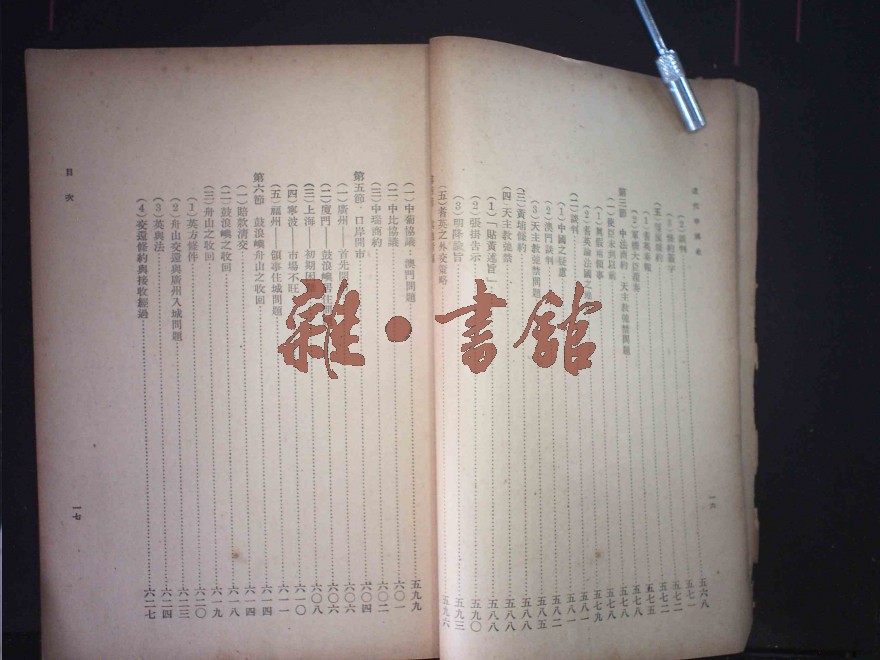 近代中國史
(2)談判
(3)
(五)
(1)
(2)軍機大臣覆奏
第三節 中法商約 天主教弛禁問題
(一)使臣未到以前
(1)
(2)
(二)談判
(1)中國之疑慮
(2)澳門談判
(3)天主教弛禁問題
(三)黃埔條約
(四)天主教弛禁
(1)「貼黃述旨」
(2)張拼告示
(3)明降諭旨
(五)耆英之外交策略
五六八
五七一
五七二
五七二
五七五
五七八
五七八
五七九
五八一
五八一
五八二
五八五
五八八
五八八
五八八
五九〇
五九三
五九六
一六
(一)中葡協議:澳門問題 五九九
(二)中比協議 六〇一
(三)中瑞商約 六〇二
第五節 口岸開市 六〇四
(一)廣州——首先開 六〇六
(二)廈門——鼓浪嶼居住問 六〇六
(三)上海——初期困難 六〇八
(四)寧波——市場不旺 六一〇
(五)福州——領事住城問題 六一一
第六節 鼓浪嶼舟山之收回 六一四
(一)賠款清交 六一四
(二)鼓浪嶼之收回 六一八
(三)舟山之收回 六一九
(1)英方條件 六二〇
(2)舟山交還與廣州入城問題 六二三
(3)英與法 六二四
(4)交還條約與接收經過 六二七
目次
一七
雜·書館